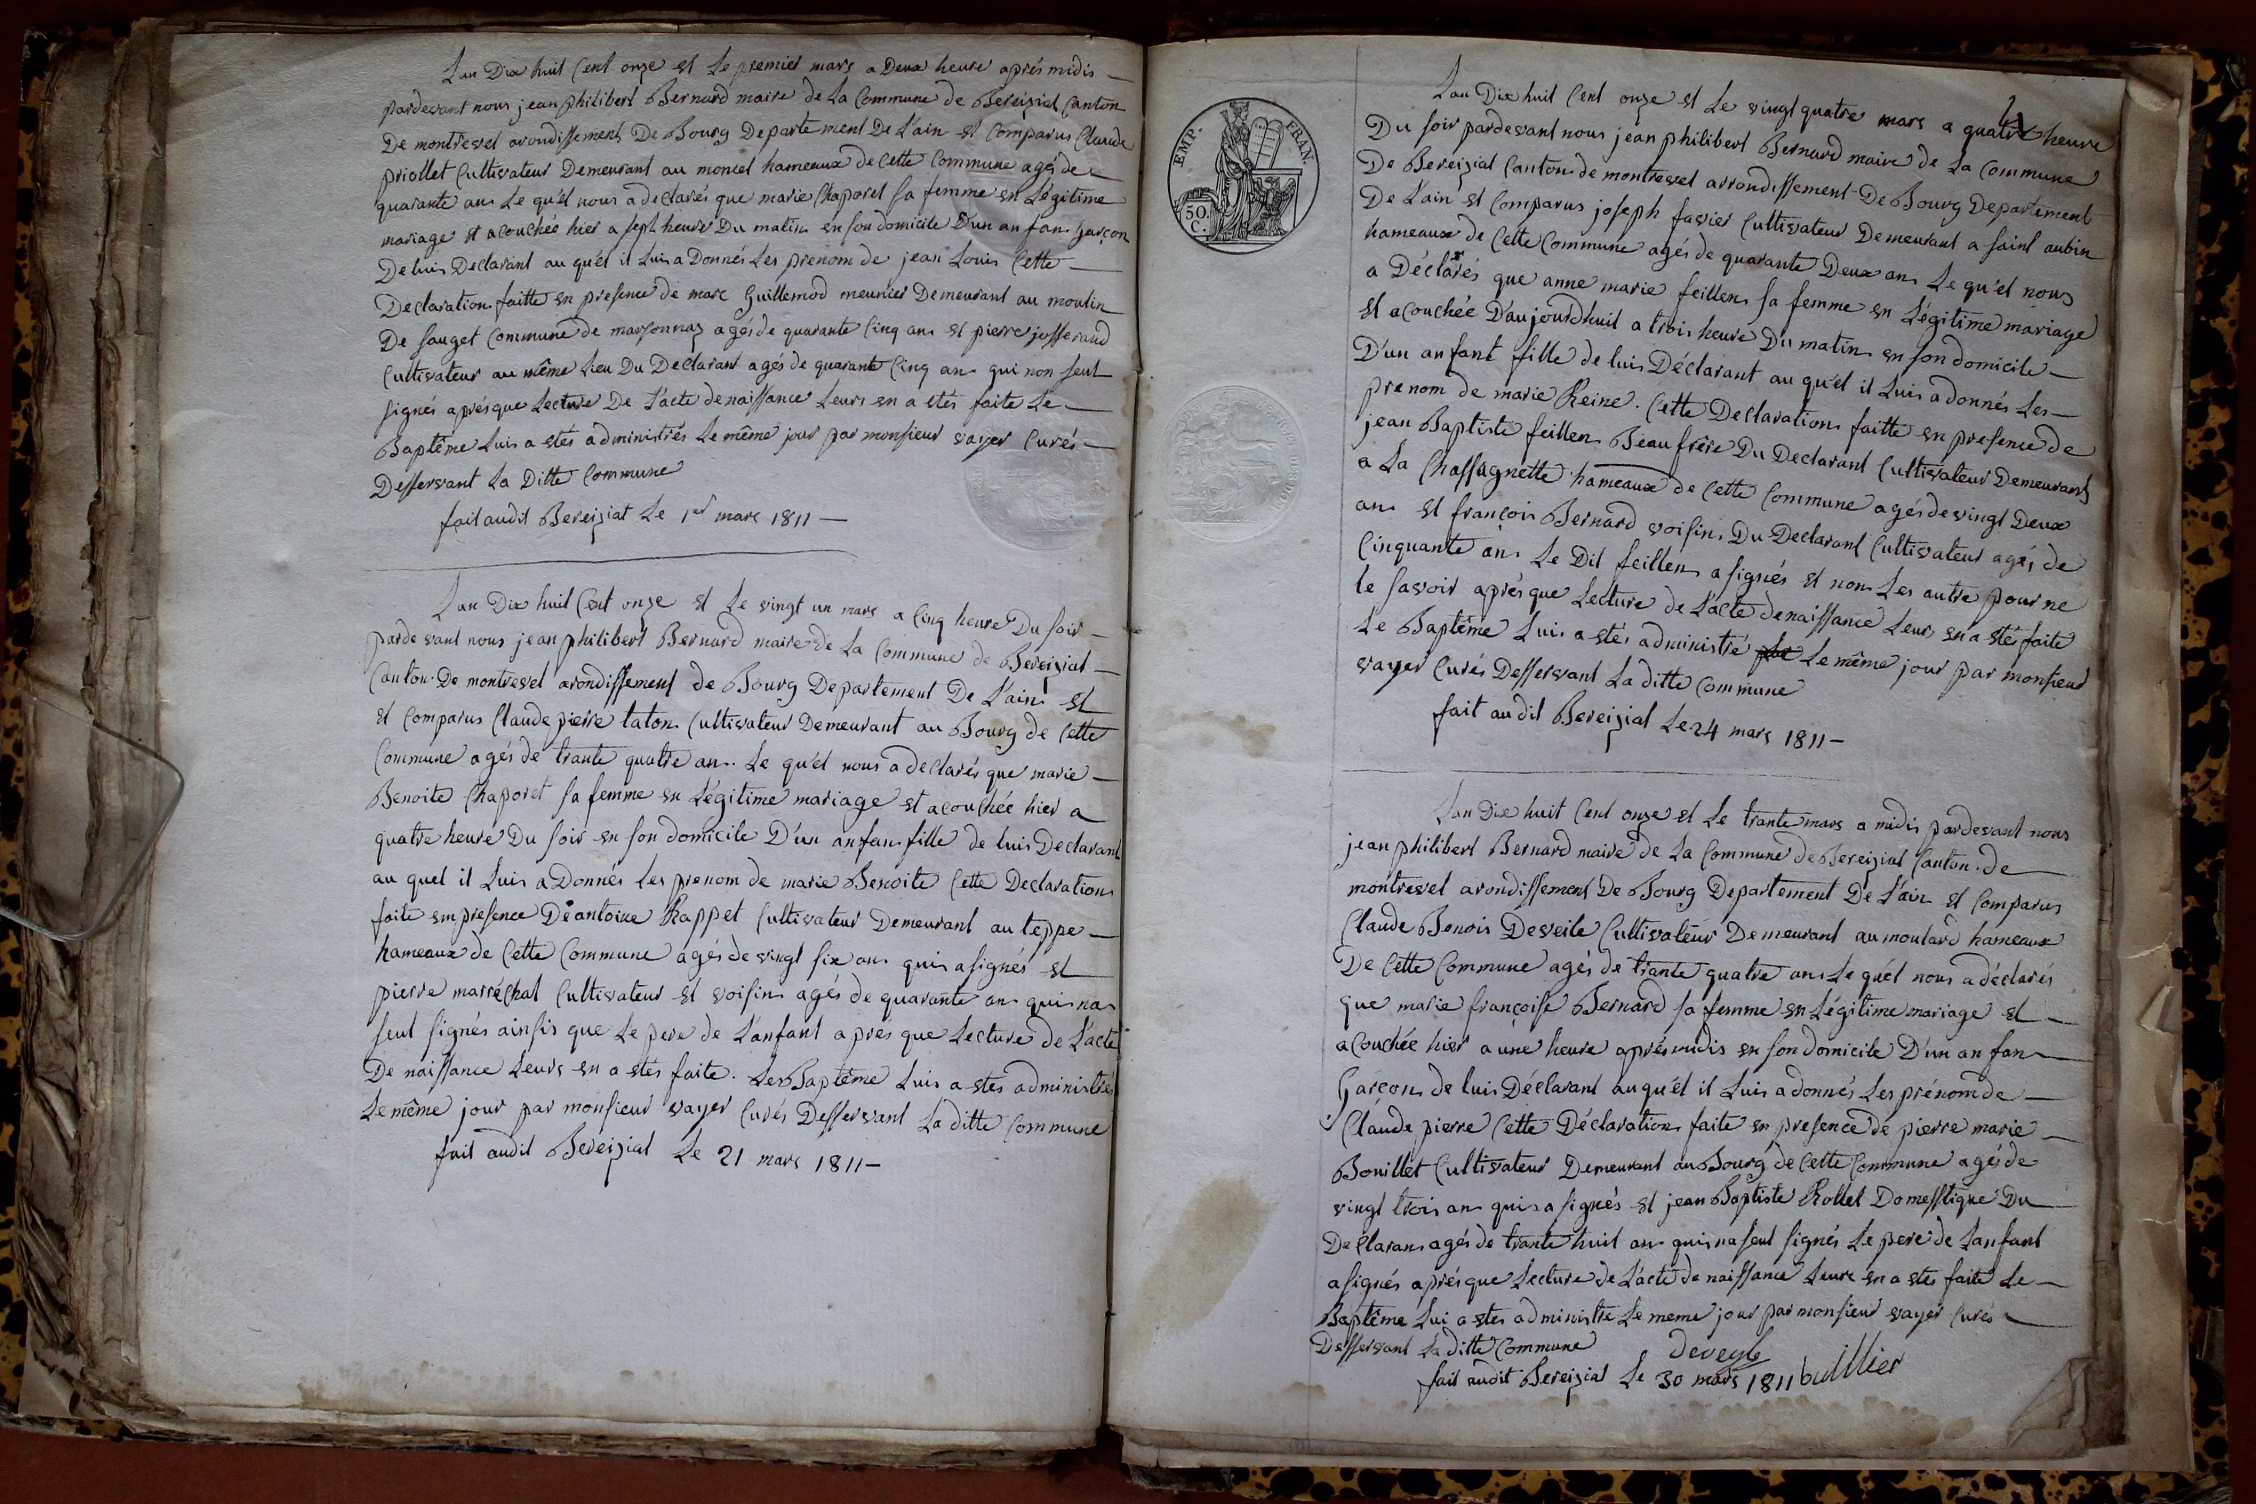 Lan Dix huit Cent onze et Le premier mars a Deux heure aprés midis
pardevant nous jean philibert Bernard maire de La Commune de Bereiziat Canton
De montrevel arondissement De Bourg Departement De L'ain et Comparus Claude
priollet Cultivateur Demeurant au moncel hameaux de Cette Commune agés de
quarante an Le qu'el nous a declarés que marie Chaporet sa femme en Légitime
mariage et acouchée hier a sept heure Du matin en son domicile D'un anfan garçon
De luis Declarant au qu'el il Luis a Donnés Les prenom de jean Louis Cette
Declaration faitte en presence de marc Guillemod meunier Demeurant au moulin
De sauget Commune de marsonnas agés de quarante Cinq an et pierre josserand
Cultivateur au même Lieu Du Declarant agés de quarante Cinq an qui non seut
signés aprés que Lecture De L'acte de naissance Leurs en a etés faite Le
Baptême Luis a etés administrés Le même jour par monsieur vayer Curés
Desservant La Ditte Commune
fait audit Bereiziat Le 1er mars 1811
Lan Dix huit Cent onze et Le vingt un mars a Cinq heure Du soir
parde vant nous jean philibert Bernard maire de La Commune de Bereiziat
Canton De montrevel arondissement de Bourg Departement De L'ain et
et Comparus Claude pierre taton Cultivateur Demeurant au Bourg de Cette
Commune agés de trante quatre an Le qu'el nous a declarés que marie
Benoite Chaporet sa femme en Légitime mariage et acouchée hier a
quatre heure Du soir en son domicile D'un anfan fille de luis Declarant
au quel il Luis a Donnés Les prenom de marie Benoite Cette Declaration
faite en presence De antoine Rappet Cultivateur Demeurant au teppe
hameaux de Cette Commune agés de vingt six an quis a signés et
pierre marréchal Cultivateur et voisin agés de quarante an quis na
seut signés ainsis que Le pere de L'anfant a pres que Lecture de L'acte
De naissance Leurs en a etés faite. Le Baptême Luis a etes administrés
Le même jour par monsieur vayer Curés Desservant La ditte Commune
fait audit Bereiziat Le 21 mars 1811
EMP. FRAN.
50. C.
Lan Dix huit Cent onze et Le vingt quatre mars a quatre heure
Du soir pardevant nous jean philibert Bernard maire de La Commune
De Bereiziat Canton de montrevel arrondissement De Bourg Departement
De L'ain et Comparus joseph favier Cultivateur Demeurant a saint aubin
hameaux de Cette Commune agés de quarante Deux an Le qu'el nous
a Déclarés que anne marie feillens sa femme en Légitime mariage
et acouchée D'aujourdhuit a trois heure Du matin en son domicile
D'un anfant fille de luis Déclarant au qu'el il Luis a donnés Les
prenom de marie Reine. Cette Declaration faitte en presence de
jean Baptiste feillens Beau frère Du Declarant Cultivateur Demeurant
a La Chassagnette hameaux de Cette Commune agés de vingt Deux
an et françois Bernard voisin Du Declarant Cultivateur agés de
Cinquante an Le Dit feillens a signés et non Les autre pour ne
le savoir aprés que Lecture de L'acte de naissance Leurs en a etés faite
Le Baptême Luis a etés administré Le même jour par monsieur
vayer Curés Desservant La ditte Commune
fait au dit Bereiziat Le 24 mars 1811
Lan Dix huit Cent onze et Le trante mars a midis pardevant nous
jean philibert Bernard maire de La Commune de Bereiziat Canton de
montrevel arondissement De Bourg Departement De L'ain et Comparus
Claude Benois Deveile Cultivateur Demeurant au moulard hameaux
De Cette Commune agés de trante quatre an Le qu'el nous a déclarés
que marie françoise Bernard sa femme en Légitime mariage et
acouchée hier a une heure aprés midis en son domicile D'un anfan
Garçon de luis Déclarant au qu'el il Luis a donnés Les prénom de
Claude pierre Cette Déclaration faite en presence de pierre marie
Bouillet Cultivateur Demeurant au Bourg de Cette Commune agés de
vingt trois an quis a signés et jean Baptiste Rollet Domesstique Du
Declaran agés de trante huit an quis na seut signés Le pere de Lanfant
a signés aprés que Lecture de L'acte de naissance Leurs en a etes faite Le
Baptême Lui a etés administre Le meme jour par monsieur vayer Curés
Desservant La ditte Commune
deveyle
fait audit Bereiziat Le 30 mars 1811 buillier